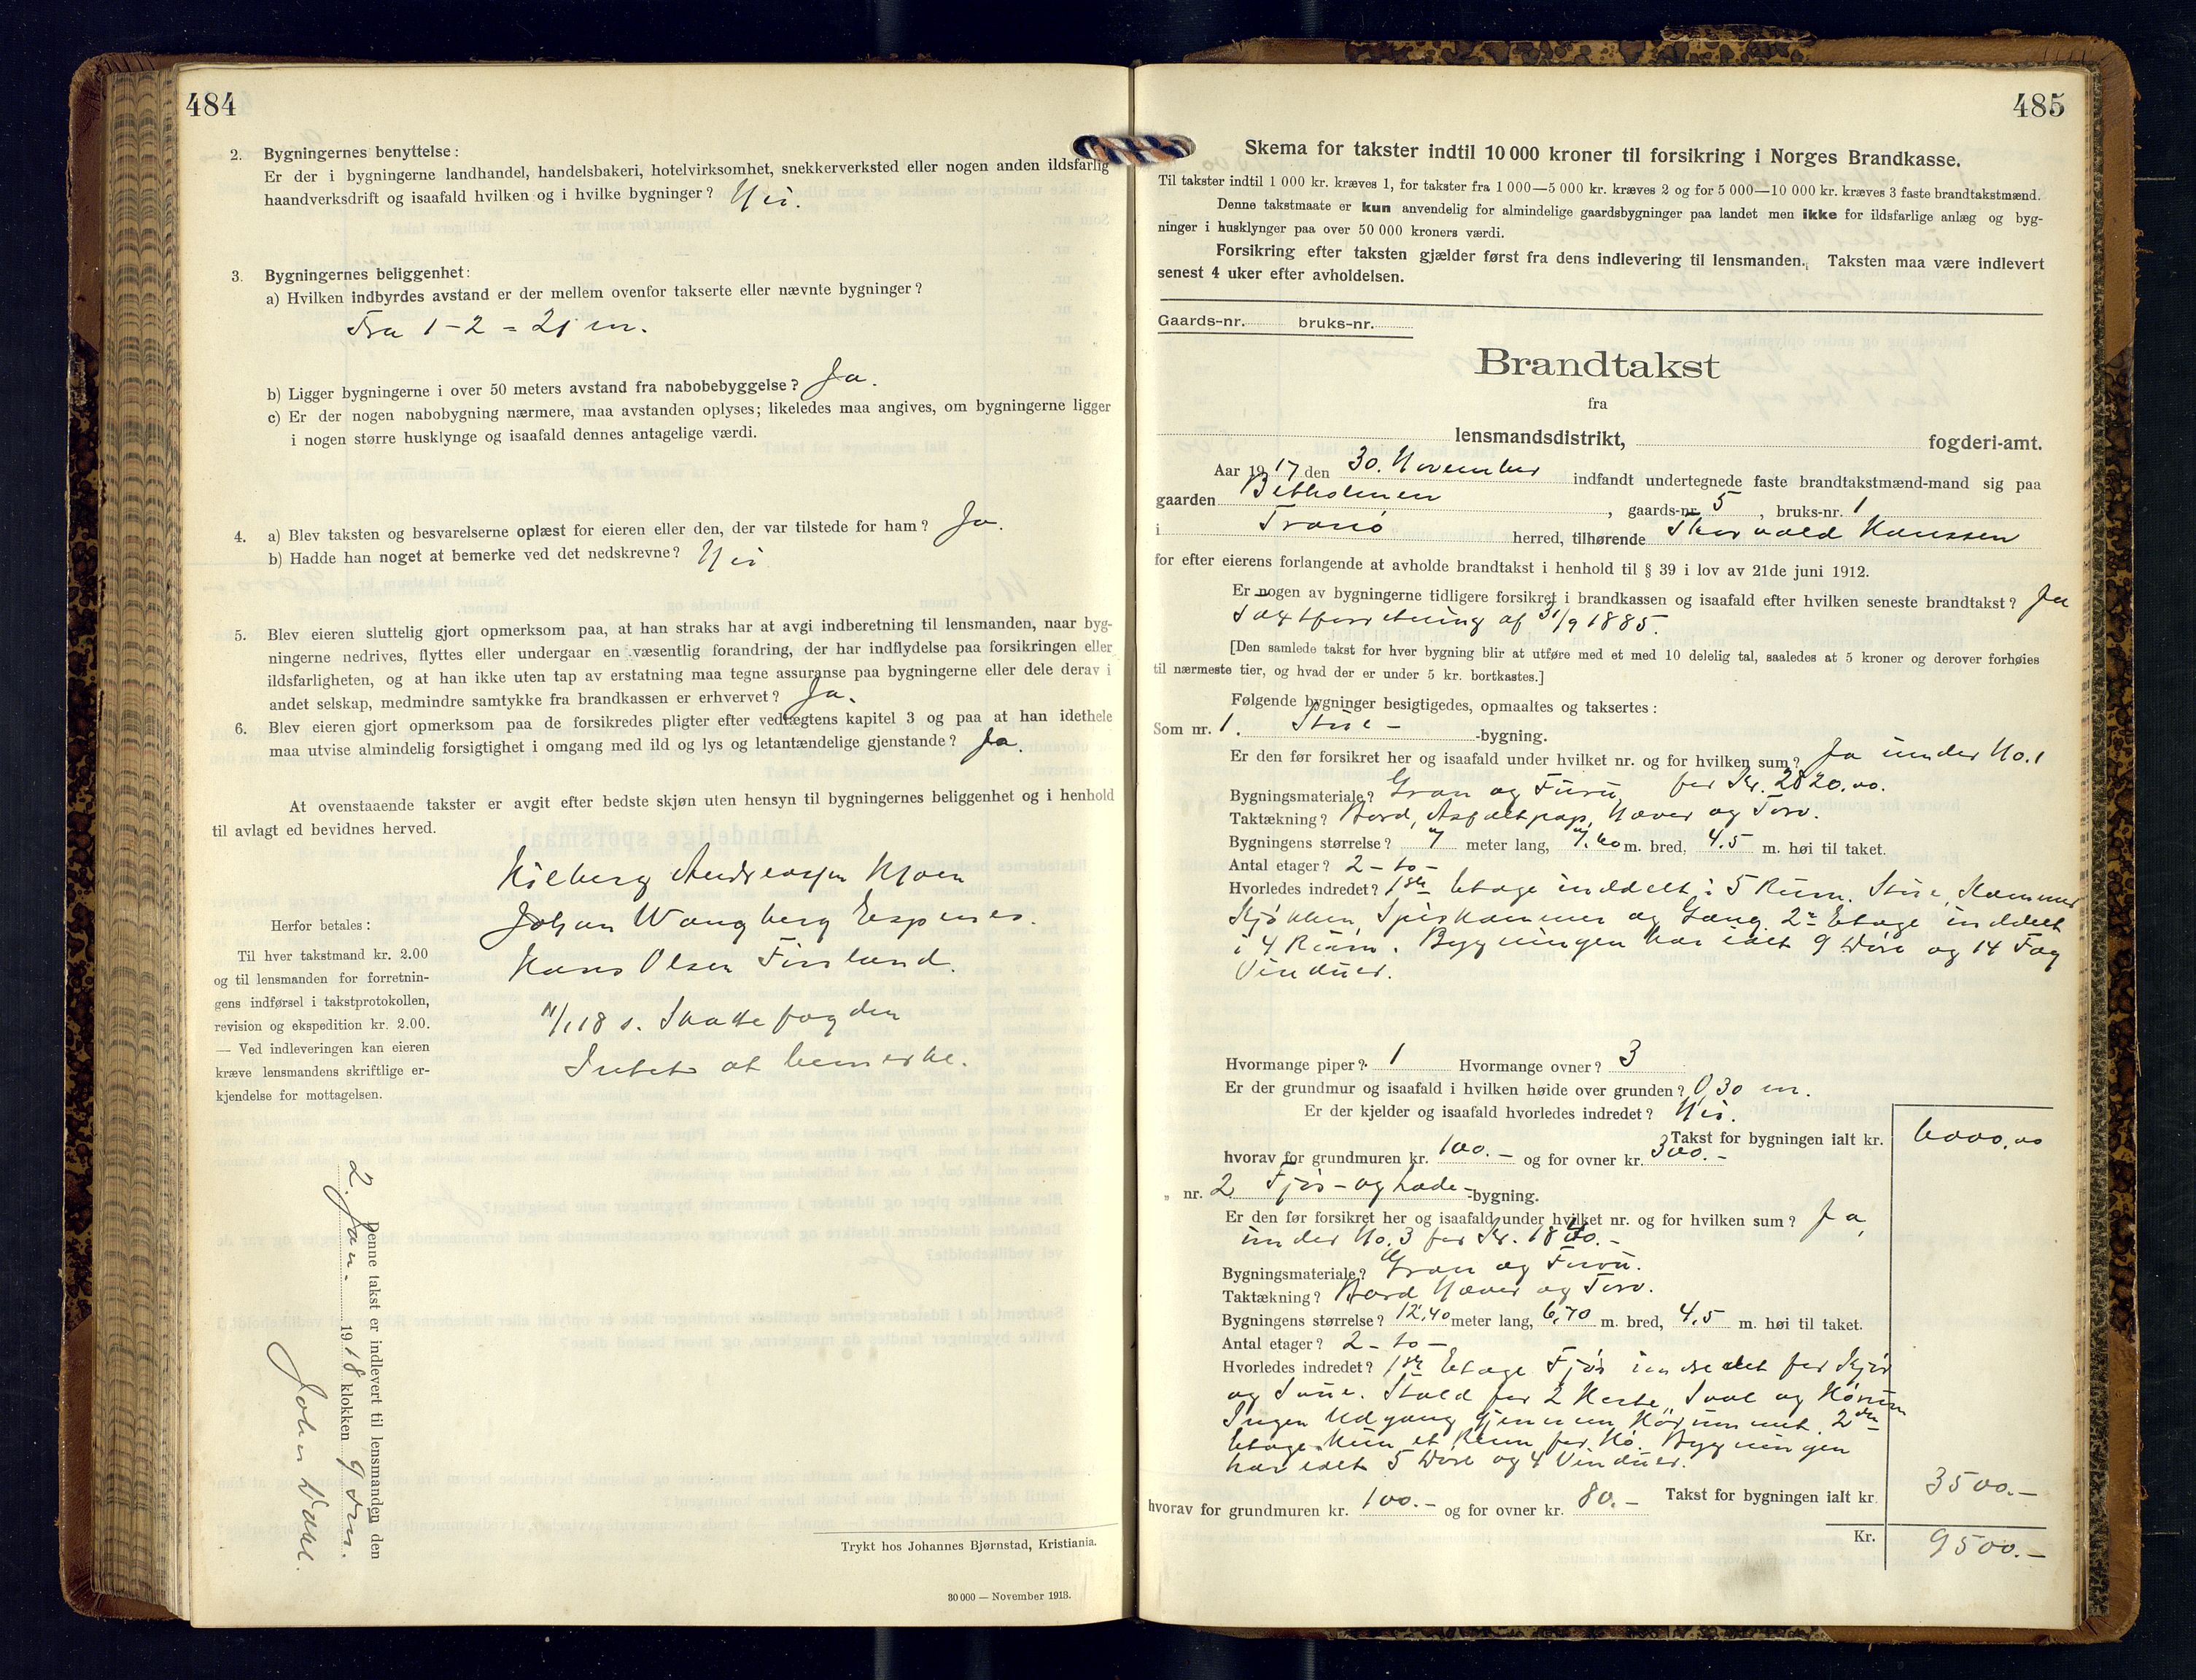 484
2. Bygningernes benyttelse:
Er der i bygningerne landhandel, handelsbakeri, hotelvirksomhet, snekkerverksted eller nogen anden ildsfarlig
haandverksdrift og isaafald hvilken og i hvilke bygninger? Nei.
3. Bygningernes beliggenhet:
a) Hvilken indbyrdes avstand er der mellem ovenfor takserte eller nævnte bygninger?
Fra 1-2 = 21 m.
b) Ligger bygningerne i over 50 meters avstand fra nabobebyggelse? Ja.
c) Er der nogen nabobygning nærmere, maa avstanden oplyses; likeledes maa angives, om bygningerne ligger
i nogen større husklynge og isaafald dennes antagelige værdi.
4. a) Blev taksten og besvarelserne oplæst for eieren eller den, der var tilstede for ham? Ja.
b) Hadde han noget at bemerke ved det nedskrevne? Nei
5. Blev eieren sluttelig gjort opmerksom paa, at han straks har at avgi indberetning til lensmanden, naar byg-
ningerne nedrives, flyttes eller undergaar en væsentlig forandring, der har indflydelse paa forsikringen eller
ildsfarligheten, og at han ikke uten tap av erstatning maa tegne assuranse paa bygningerne eller dele derav i
andet selskap, medmindre samtykke fra brandkassen er erhvervet? Ja.
6. Blev eieren gjort opmerksom paa de forsikredes pligter efter vedtægtens kapitel 3 og paa at han idethele
maa utvise almindelig forsigtighet i omgang med ild og lys og letantændelige gjenstande? Ja.
At ovenstaaende takster er avgit efter bedste skjøn uten hensyn til bygningernes beliggenhet og i henhold
til avlagt ed bevidnes herved.
Hilberg Andreassen Moen
Johan Wangberg Espenes.
Hans Olsen Finland.
11/1 18 s. Skattefogden
Intet at bemerke.
Herfor betales:
Til hver takstmand kr. 2.00
og til lensmanden for forretnin-
gens indførsel i takstprotokollen,
revision og ekspedition kr. 2.00.
— Ved indleveringen kan eieren
kræve lensmandens skriftlige er-
kjendelse for mottagelsen.
Denne takst er indlevert til lensmanden den
2. Jan. 1918 klokken 9 form.
Johan Dahl.
Trykt hos Johannes Bjørnstad, Kristiania.
30 000 — November 1913.
485
Skema for takster indtil 10 000 kroner til forsikring i Norges Brandkasse.
Til takster indtil 1 000 kr. kræves 1, for takster fra 1 000—5 000 kr. kræves 2 og for 5 000—10 000 kr. kræves 3 faste brandtakstmænd.
Denne takstmaate er kun anvendelig for almindelige gaardsbygninger paa landet men ikke for ildsfarlige anlæg og byg-
ninger i husklynger paa over 50 000 kroners værdi.
Forsikring efter taksten gjælder først fra dens indlevering til lensmanden. Taksten maa være indlevert
senest 4 uker efter avholdelsen.
Gaards-nr. bruks-nr.
Brandtakst
fra
lensmandsdistrikt, fogderi-amt.
Aar 1917 den 30. November indfandt undertegnede faste brandtakstmænd-mand sig paa
gaarden Betholmen, gaards-nr. 5, bruks-nr. 1
i Tranø herred, tilhørende Thorvald Hanssen
for efter eierens forlangende at avholde brandtakst i henhold til § 39 i lov av 21de juni 1912.
Er nogen av bygningerne tidligere forsikret i brandkassen og isaafald efter hvilken seneste brandtakst? Ja
Taxtforretning af 31/9 1885.
[Den samlede takst for hver bygning blir at utføre med et med 10 delelig tal, saaledes at 5 kroner og derover forhøies
til nærmeste tier, og hvad der er under 5 kr. bortkastes.]
Følgende bygninger besigtigedes, opmaaltes og taksertes:
Som nr. 1. Stue- -bygning.
Er den før forsikret her og isaafald under hvilket nr. og for hvilken sum? Ja under No. 1
Bygningsmateriale? Gran og Furu, for Kr. 2820.00.
Taktækning? Bord, Asfaltpap, Næver og Torv.
Bygningens størrelse? 7 meter lang, 7.60 m. bred, 4.5 m. høi til taket.
Antal etager? 2 - to -
Hvorledes indredet? 1ste Etage inddelt i 5 Rum. Stue, Kammer
Kjøkken, Spiskammer og Gang. 2n Etage inddelt
i 4 Rum. Bygningen har ialt 9 Døre og 14 Fag
Vinduer.
Hvormange piper? 1 Hvormange ovner? 3
Er der grundmur og isaafald i hvilken høide over grunden? 0,30 m.
Er der kjelder og isaafald hvorledes indredet? Nei.
Takst for bygningen ialt kr. 6000,00
hvorav for grundmuren kr. 100.- og for ovner kr. 300.-
„ nr. 2 Fjøs- og Lade- -bygning.
Er den før forsikret her og isaafald under hvilket nr. og for hvilken sum? Ja,
under No. 3 for Kr. 1840.-
Bygningsmateriale? Gran og Furu.
Taktækning? Bord Næver og Torv.
Bygningens størrelse? 12,40 meter lang, 6,70 m. bred, 4,5 m. høi til taket.
Antal etager? 2 - to -
Hvorledes indredet? 1ste Etage Fjøs indredet for Kjør
og Saue. Stald for 2 Heste, Sval og Hørum
Ingen Udgang gjennem Hørummet. 2den
Etage kun et Rum for Hø. Bygningen
har ialt 5 Døre og 4 Vinduer.
Takst for bygningen ialt kr. 3500.-
hvorav for grundmuren kr. 100.- og for ovner kr. 80.-
Kr. 9500.-